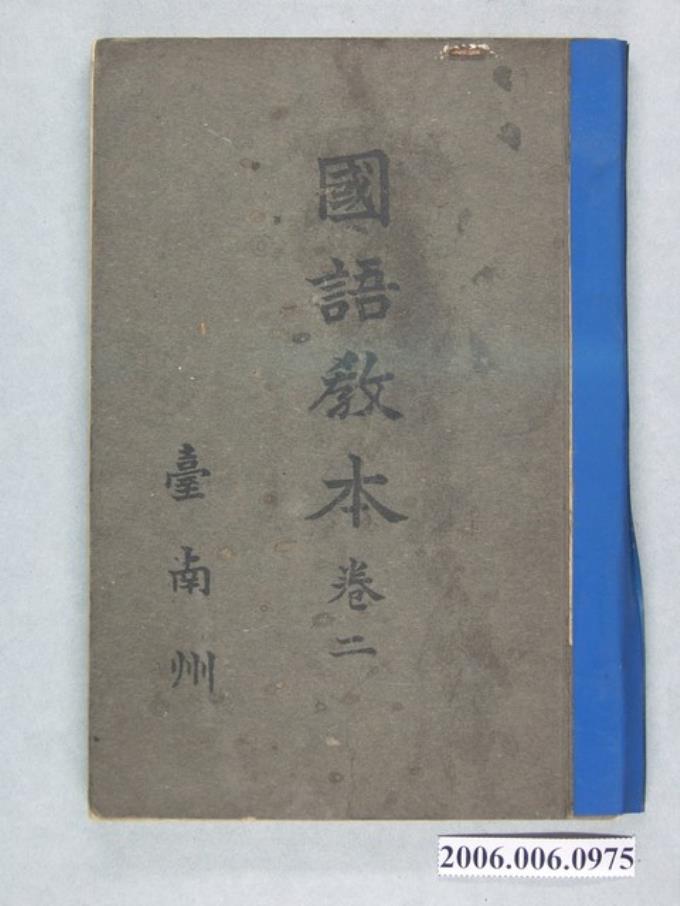 國語敎本卷二
臺南州
2006.006.0975